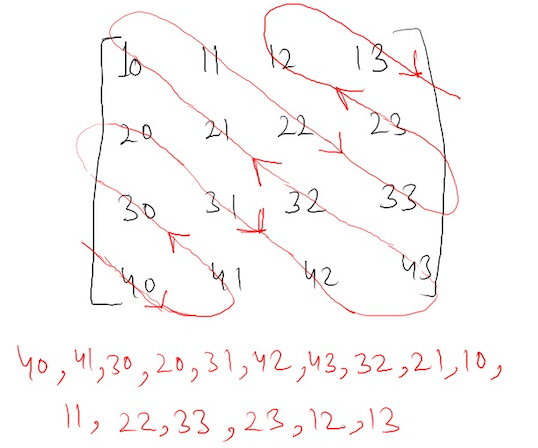 10 11 12 13
20 21 22 23
30 31 32 33
40 41 42 43
40, 41, 30, 20, 31, 42, 43, 32, 21, 10,
11, 22, 33, 23, 12, 13